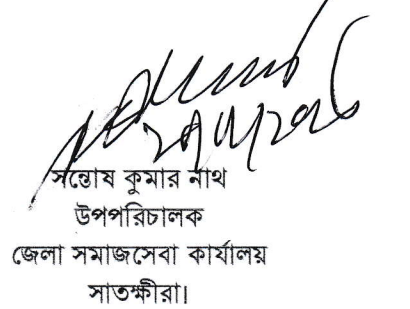 সন্তোষ কুমার নাথ
উপপরিচালক
জেলা সমাজসেবা কার্যালয়
সাতক্ষীরা।